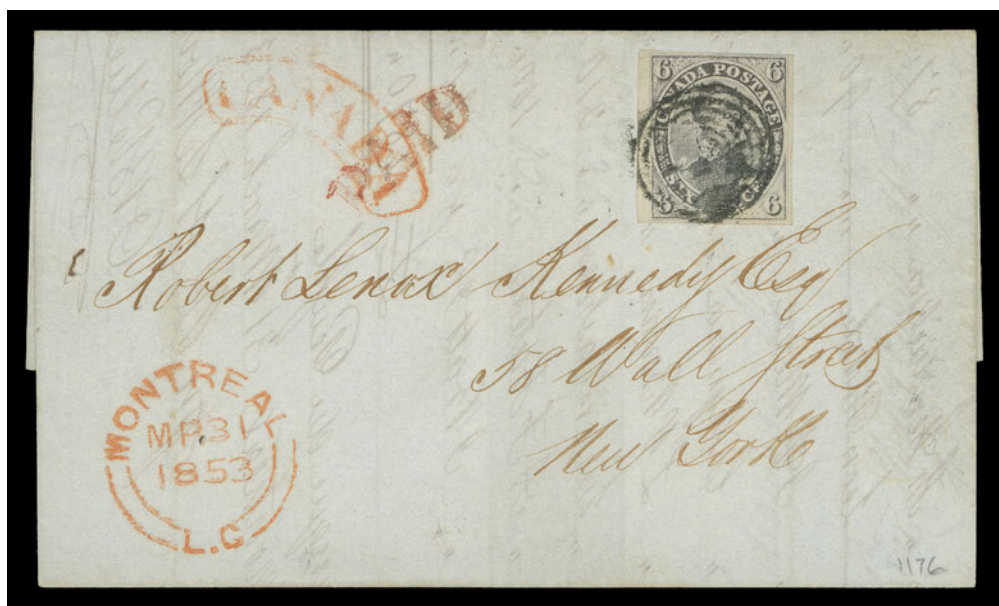 CANADA
PAID
6 CANADA POSTAGE 6
6 6
Robert Lenox Kennedy Esq
58 Wall Street
New York
MONTREAL
MR 31
1853
L.C
1176